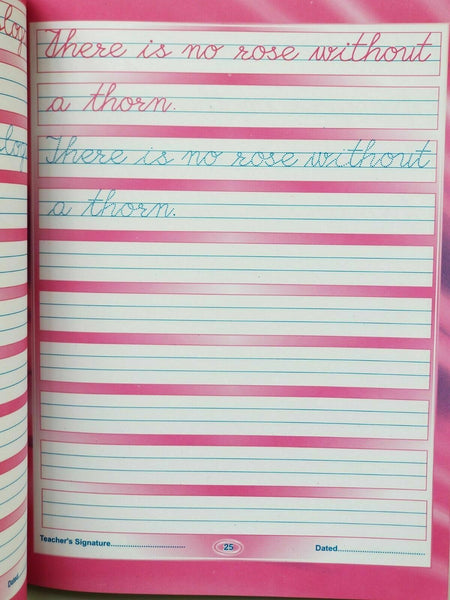 There is no rose without
a thorn.
There is no rose without
a thorn.
Teacher's Signature.................................. 25 Dated........................................